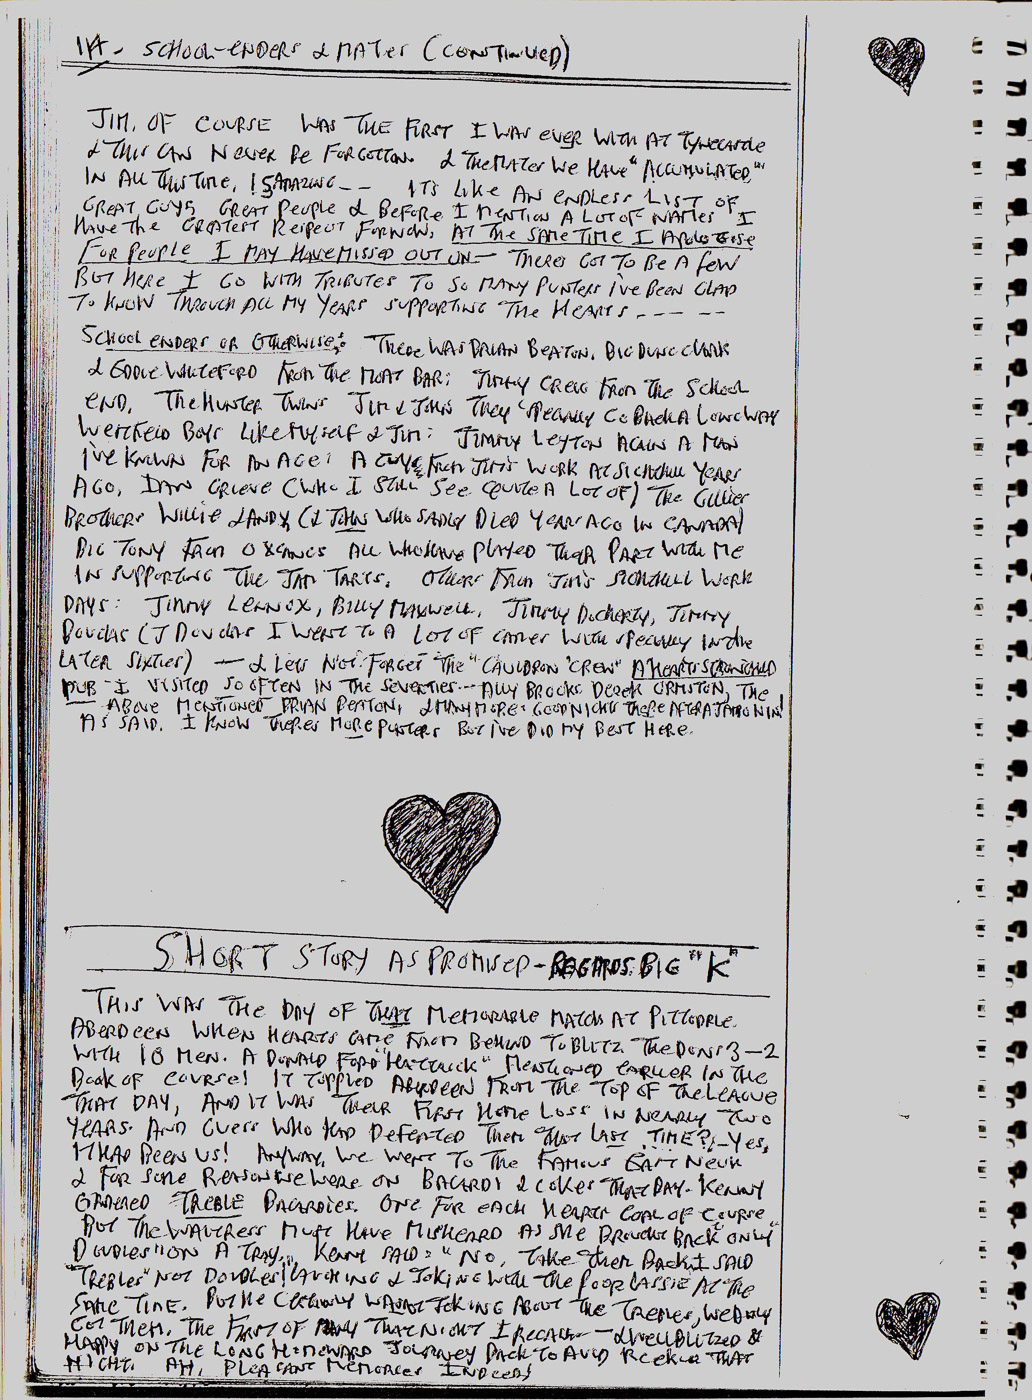 14. SCHOOL-ENDERS & MATES (CONTINUED)
JIM, OF COURSE WAS THE FIRST I WAS EVER WITH AT TYNECASTLE
& THIS CAN NEVER BE FORGOTTON. & THE MATES WE HAVE "ACCUMULATED"
IN ALL THIS TIME, IS AMAZING -- ITS LIKE AN ENDLESS LIST OF
GREAT GUYS, GREAT PEOPLE & BEFORE I MENTION A LOT OF NAMES I
HAVE THE GREATEST RESPECT FOR NOW, AT THE SAME TIME I APOLOGISE
FOR PEOPLE I MAY HAVE MISSED OUT ON - THERES GOT TO BE A FEW
BUT HERE I GO WITH TRIBUTES TO SO MANY PUNTERS I'VE BEEN GLAD
TO KNOW THROUGH ALL MY YEARS SUPPORTING THE HEARTS ---- --
SCHOOL ENDERS OR OTHERWISE: THERE WAS BRIAN BEATON, BIG DUNC CLARK
& EDDIE WHITEFORD FROM THE MOAT BAR: JIMMY CREIG FROM THE SCHOOL
END. THE HUNTER TWINS JIM & JOHN THEY SPECIALLY GO BACK A LONG WAY
BOYS LIKE MYSELF & JIM: JIMMY LEYTON AGAIN A MAN
I'VE KNOWN FOR AN AGE: A GUY FROM JIM'S WORK AT SIGHTHILL YEARS
AGO, IAN GRIEVE (WHO I STILL SEE QUITE A LOT OF) THE GILLIES
BROTHERS WILLIE & ANDY, (& JOHN WHO SADLY DIED YEARS AGO IN CANADA)
BIG TONY FROM OXGANGS ALL WHO HAVE PLAYED THEIR PART WITH ME
IN SUPPORTING THE JAM TARTS. OTHERS FROM JIM'S SIGHTHILL WORK
DAYS: JIMMY LENNOX, BILLY MAXWELL, JIMMY DOCHERTY, JIMMY
DOUGLAS (J DOUGLAS I WENT TO A LOT OF GAMES WITH SPECIALLY IN THE
LATER SIXTIES) - & LETS NOT FORGET THE "CAULDRON CREW" A HEARTS STRONGHOLD
PUB I VISITED SO OFTEN IN THE SEVENTIES -- ALLY BROOKS, DEREK ORMSTON, THE
ABOVE MENTIONED BRIAN BEATON, & MANY MORE. GOOD NIGHTS THERE AFTER A JAMBO WIN!
AS SAID. I KNOW THERES MORE PUNTERS BUT I'VE DID MY BEST HERE.
SHORT STORY AS PROMISED - REGARDS. BIG "K"
THIS WAS THE DAY OF THAT MEMORABLE MATCH AT PITTODRIE.
ABERDEEN WHEN HEARTS CAME FROM BEHIND TO BLITZ THE DONS 3-2
WITH 10 MEN. A DONALD FORD "HATTRICK" MENTIONED EARLIER IN THE
BOOK OF COURSE! IT TOPPLED ABERDEEN FROM THE TOP OF THE LEAGUE
THAT DAY, AND IT WAS THEIR FIRST HOME LOSS IN NEARLY TWO
YEARS. AND GUESS WHO HAD DEFEATED THEM THAT LAST TIME? - YES,
IT HAD BEEN US! ANYWAY, WE WENT TO THE FAMOUS EAST NEUK
& FOR SOME REASON WE WERE ON BACARDI & COKES THAT DAY. KENNY
ORDERED TREBLE BACARDIES. ONE FOR EACH HEARTS GOAL OF COURSE
BUT THE WAITRESS MUST HAVE MISHEARD AS SHE BROUGHT BACK "ONLY
DOUBLES" ON A TRAY. KENNY SAID: "NO, TAKE THEM BACK I SAID
"TREBLES" NOT DOUBLES! LAUGHING & JOKING WITH THE POOR LASSIE AT THE
SAME TIME. BUT HE CERTAINLY WASNT JOKING ABOUT THE TREBLES, WE DULY
GOT THEM. THE FIRST OF MANY THAT NIGHT I RECALL - & WELL BLITZED &
HAPPY ON THE LONG HOMEWARD JOURNEY BACK TO AULD REEKIE THAT
NIGHT. AH, PLEASANT MEMORIES INDEED!